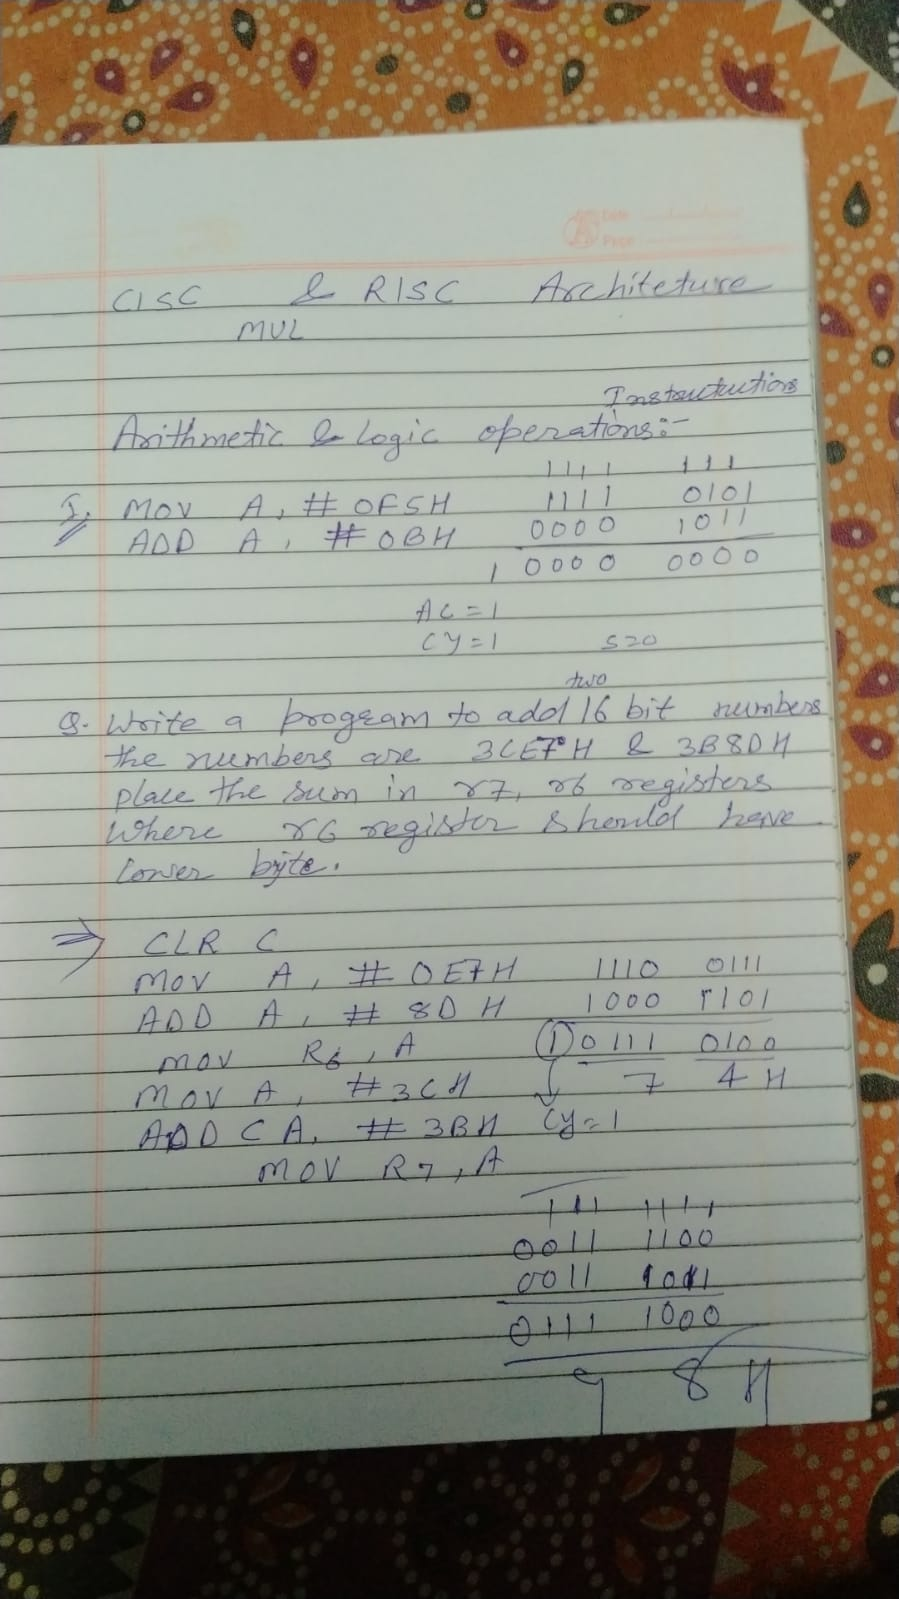 Date
Page
CISC & RISC Architeture
MUL
Instructuctions
Arithmetic & Logic operations:-
1111 111
I. MOV A, # 0F5H 1111 0101
ADD A, # 0BH 0000 1011
1 0000 0000
AC=1
CY=1 S=0
two
Q. Write a program to add 16 bit numbers
the numbers are 3CE7H & 3B8DH
place the sum in r7, r6 registers
Where r6 register should have
lower byte.
⇒ CLR C
MOV A, # 0E7H 1110 0111
ADD A, # 8D H 1000 1101
MOV R6, A 1 0111 0100
MOV A, #3CH 7 4 H
ADD C A, # 3BH Cy=1
MOV R7, A
111 1111
0011 1100
0011 1011
0111 1000
8 H